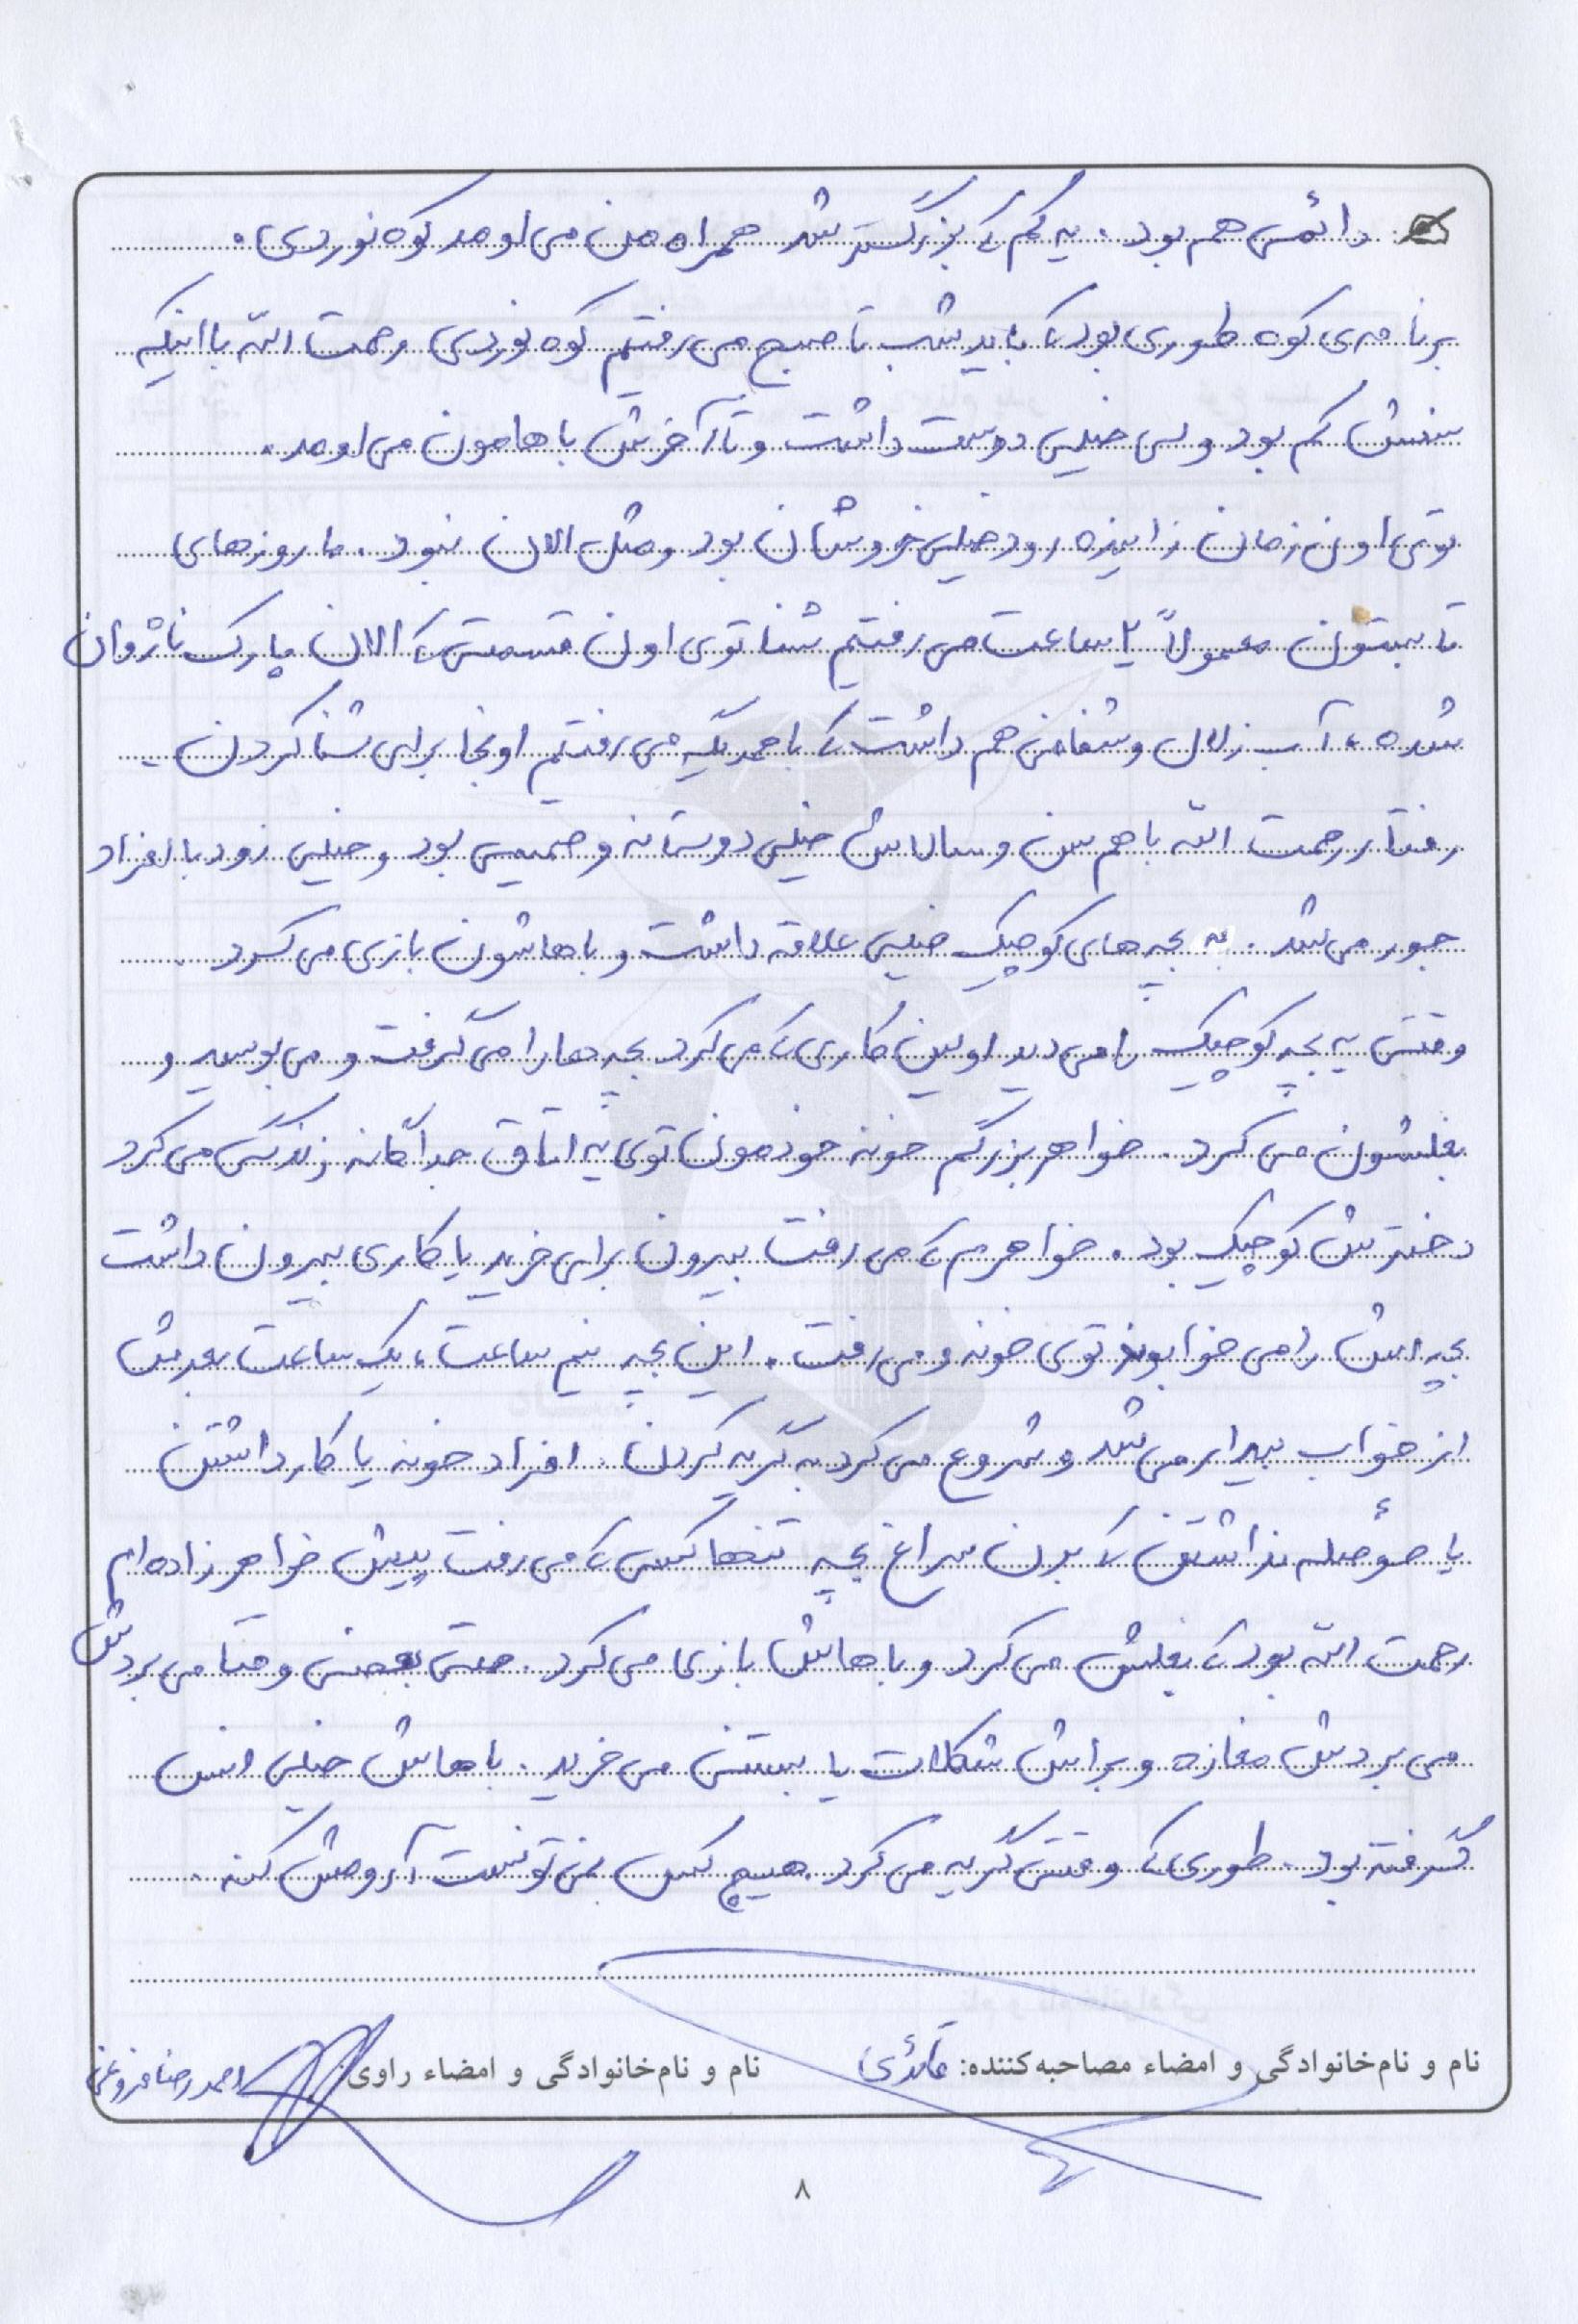 دائمی هم بود. یه کم که بزرگتر شد همراه من می اومد کوه نوردی.
برنامه ی کوه طوری بود که باید شب تا صبح می رفتیم کوه نوردی رحمت الله با اینکه
سنش کم بود ولی خیلی دوست داشت و تا آخرش باهامون می اومد.
توی اون زمان زاینده رود خیلی خروشان بود و مثل الان نبود. ما روزهای
تابستون معمولاً ۲ ساعت می رفتیم شنا توی اون قسمتی که الان پارک ناژوان
شده، آب زلال و شفافی هم داشت که با همدیگه می رفتیم اونجا برای شنا کردن.
رفتار رحمت الله با هم سن و سالاش خیلی دوستانه و صمیمی بود و خیلی زود با افراد
جور می شد. به بچه های کوچیک خیلی علاقه داشت و باهاشون بازی می کرد.
وقتی یه بچه کوچیک را می دید اولین کاری که می کرد بچه ها را می گرفت و می بوسید و
بغلشون می کرد. خواهر بزرگم خونه خودمون توی یه اتاق جداگانه زندگی می کرد
دخترش کوچیک بود. خواهرم که می رفت بیرون برای خرید یا کاری بیرون داشت
بچه اش را می خوابوند توی خونه و می رفت. این بچه نیم ساعت، یک ساعت بعدش
از خواب بیدار می شد و شروع می کرد به گریه کردن. افراد خونه یا کار داشتن
یا حؤصله نداشتن که برن سراغ بچه تنها کسی که می رفت پیش خواهرزاده ام
رحمت الله بود که بغلش می کرد و باهاش بازی می کرد. حتی بعضی وقتا می بردش
می بردش مغازه و براش شکلات یا بستنی می خرید. باهاش خیلی انس
گرفته بود. طوری که وقتی گریه می کرد هیچ کس نمی تونست آرومش کنه.
نام و نام خانوادگی و امضاء مصاحبه کننده: نام و نام خانوادگی و امضاء راوی: احمدرضا فروغی
۸